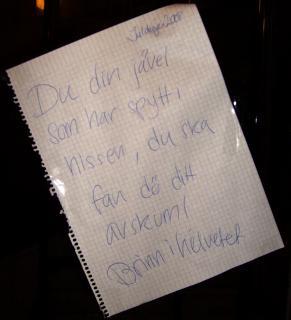 Juldagen 2008
Du din jävel
som har spytt i
hissen, du ska
fan dö ditt
avskum!
Brinn i helvetet